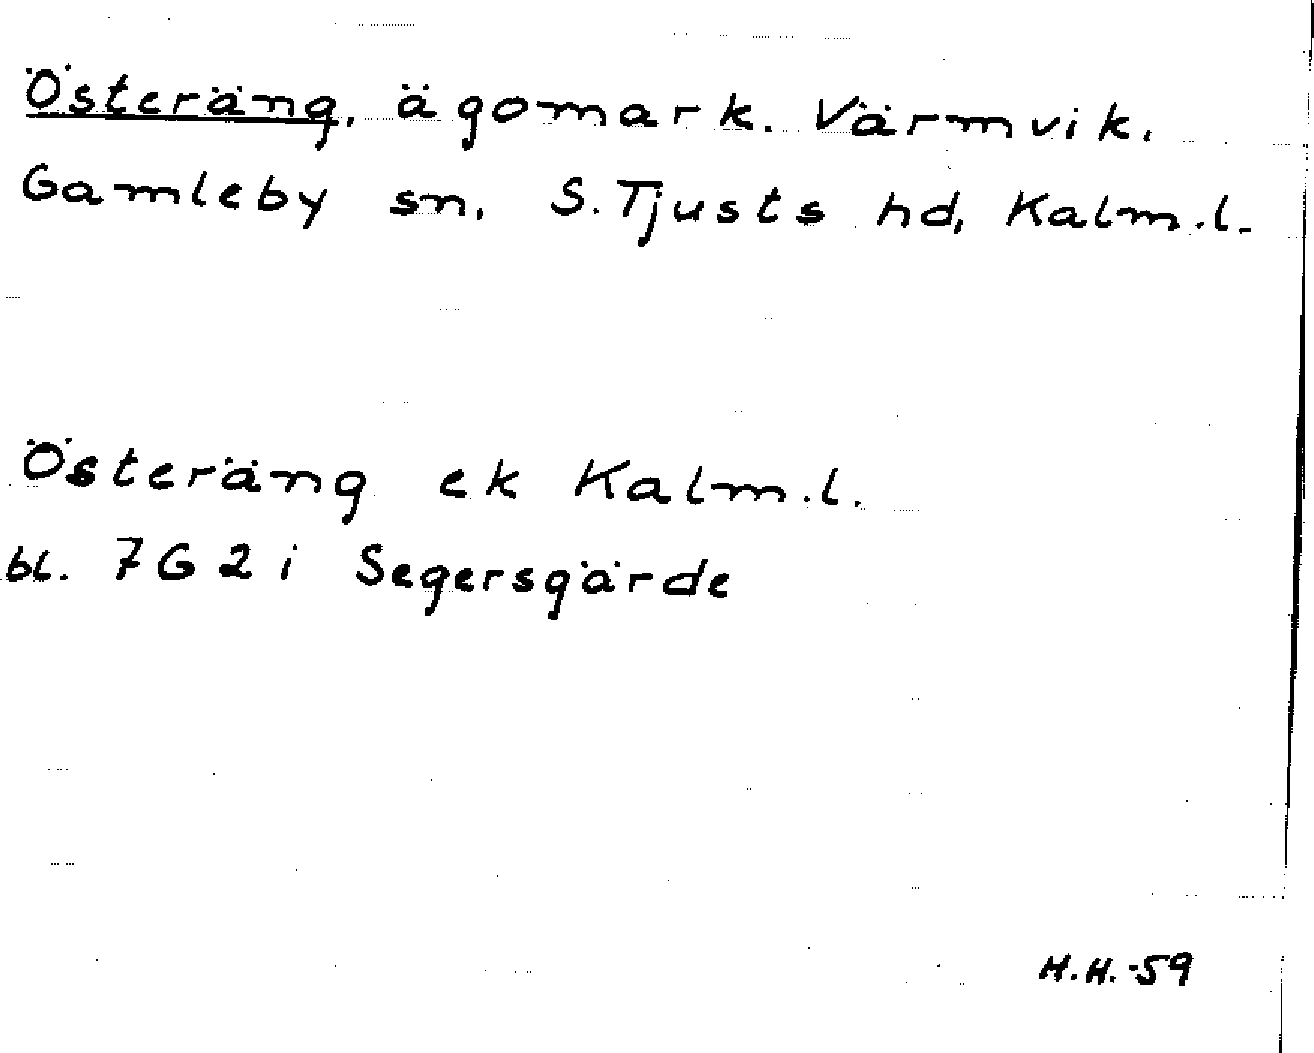 Österäng, ägomark. Värmvik.
Gamleby sn, S. Tjusts hd, Kalm.l.
Österäng ek Kalm.l.
bl. 7G2i Segersgärde
H.H.-59